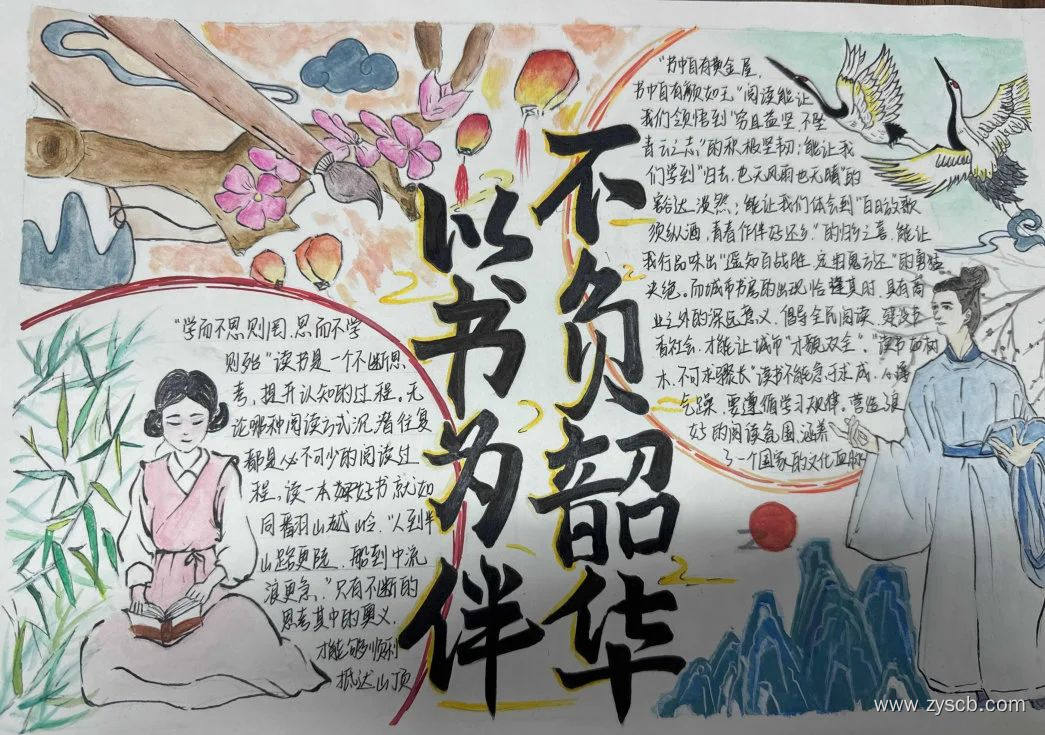 不负韶华
以书为伴
"书中自有黄金屋,
书中自有颜如玉"阅读能让
我们领悟到"穷且益坚,不坠
青云之志"的积极坚韧;能让我
们学到"归去,也无风雨也无晴"的
豁达淡然;能让我们体会到"白日放歌
须纵酒,青春作伴好还乡"的归乡之喜,能让
我们品味出"遥知百战胜,定扫鬼方还"的勇猛
决绝。而城市书房的出现恰逢其时,具有商
业之外的深远意义,倡导全民阅读,建设书
香社会,才能让城市"才貌双全"。"读书如树
木,不可求骤长"读书不能急于求成,心薄
气躁,要遵循学习规律。营造浪
好的阅读氛围,涵养
了一个国家的文化血脉
"学而不思则罔,思而不学
则殆"读书是一个不断思
考,提升认知的过程。无
论哪种阅读方式沉潜往复
都是必不可少的阅读过
程。读一本好书就如
同翻山越岭,"人到半
山路更陡,船到中流
浪更急。"只有不断的
思考其中的奥义,
才能够顺利
抵达山顶
www.zyscb.com